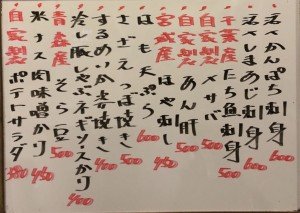 活〆かんぱち刺身 600
活〆しまあじ刺身 600
千葉産 たち魚刺身 500
自家製 〆サバ 500
自家製 あん肝 500
宮城産 刺し 450
はも天ぷら 600
さざえつぼ焼き 500
するめいか 焼き 400
冷し豚しゃぶネギソースかけ
青森産 そら豆 500
米ナス肉味噌かけ 450
自家製 ポテトサラダ 380